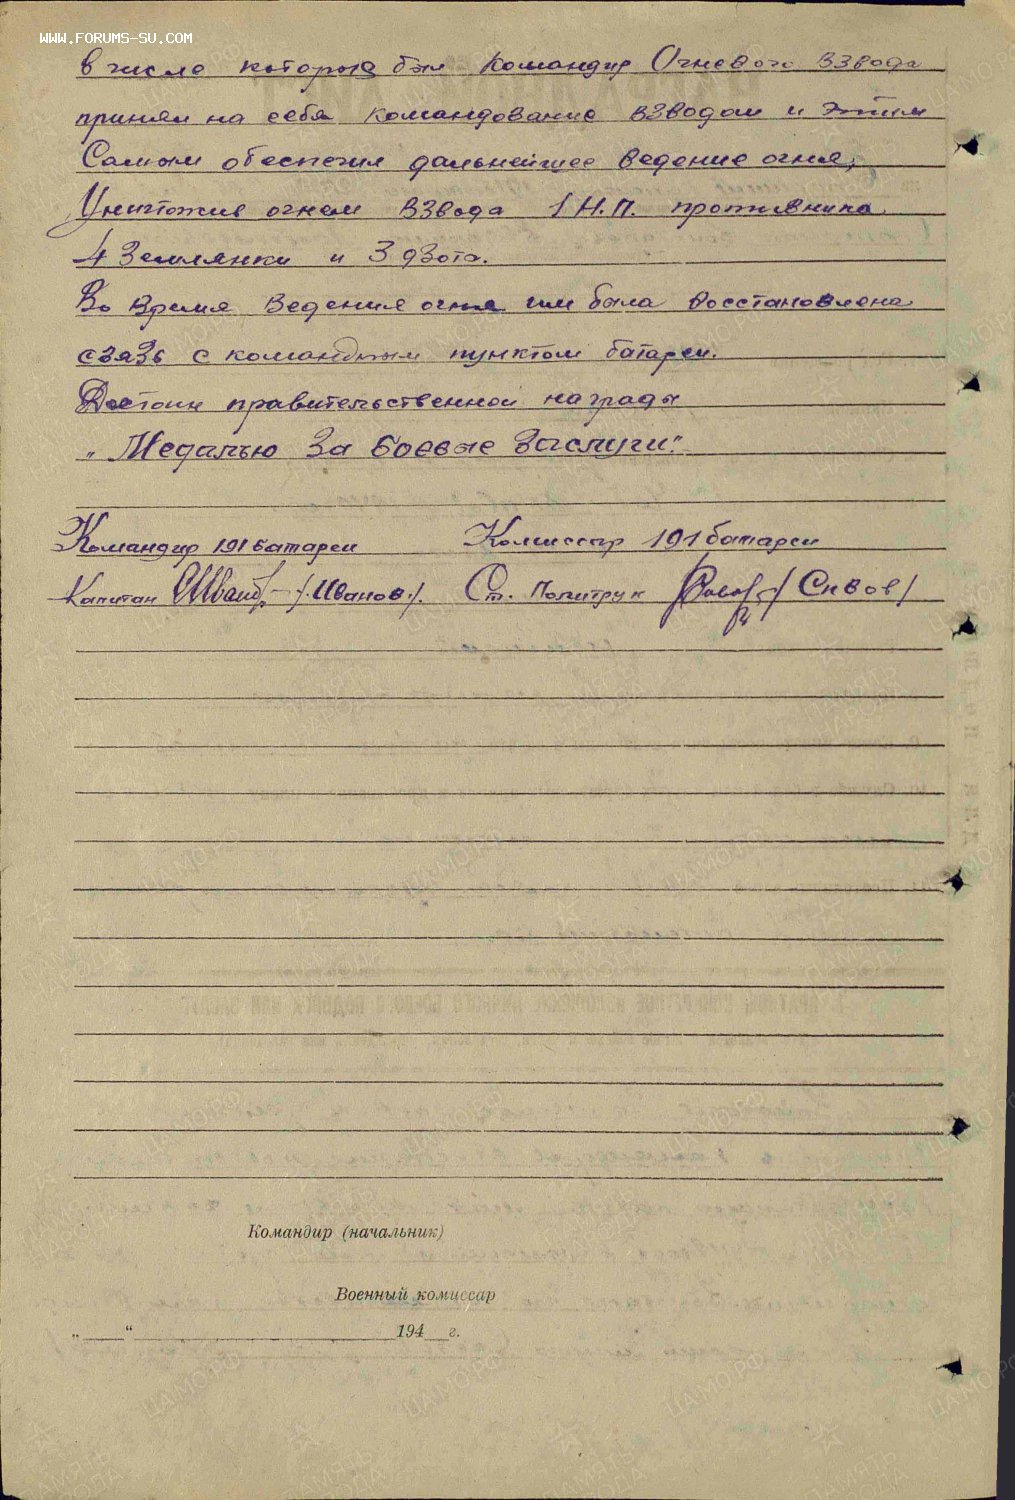 WWW.FORUMS-SU.COM
в числе которых был Командир Огневого взвода
принял на себя командование взводом и этим
Самым обеспечил дальнейшее ведение огня,
Уничтожив огнем взвода 1 Н.П. противника
4 Землянки и 3 дзота.
Во время ведения огня им была восстановлена
связь с командным пунктом батареи.
Достоин правительственной награды
„Медалью За боевые заслуги".
Командир 191 батареи Комиссар 191 батареи
Капитан /.Иванов./. Ст. Политрук /Сивов/
Командир (начальник)
Военный комиссар
„ “ 194 г.